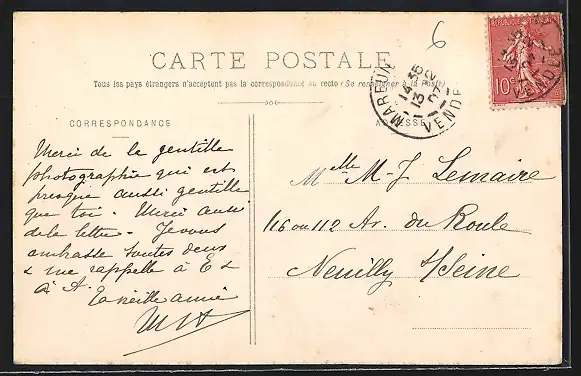 6
CARTE POSTALE
Tous les pays étrangers n'acceptent pas la correspondance au recto (Se renseigner à la Poste)
RÉPUBLIQUE FRANÇAISE
10c
MAREUIL
14 35
13
VENDÉE
CORRESPONDANCE
ADRESSE
Merci de la gentille
photographie qui est
presque aussi gentille
que toi - Merci aussi
de la lettre - Je vous
embrasse toutes deux
& me rappelle à E &
à A. Ta vieille amie
Melle M-J Lemaire
116 ou 112 Av. du Roule
Neuilly s/Seine